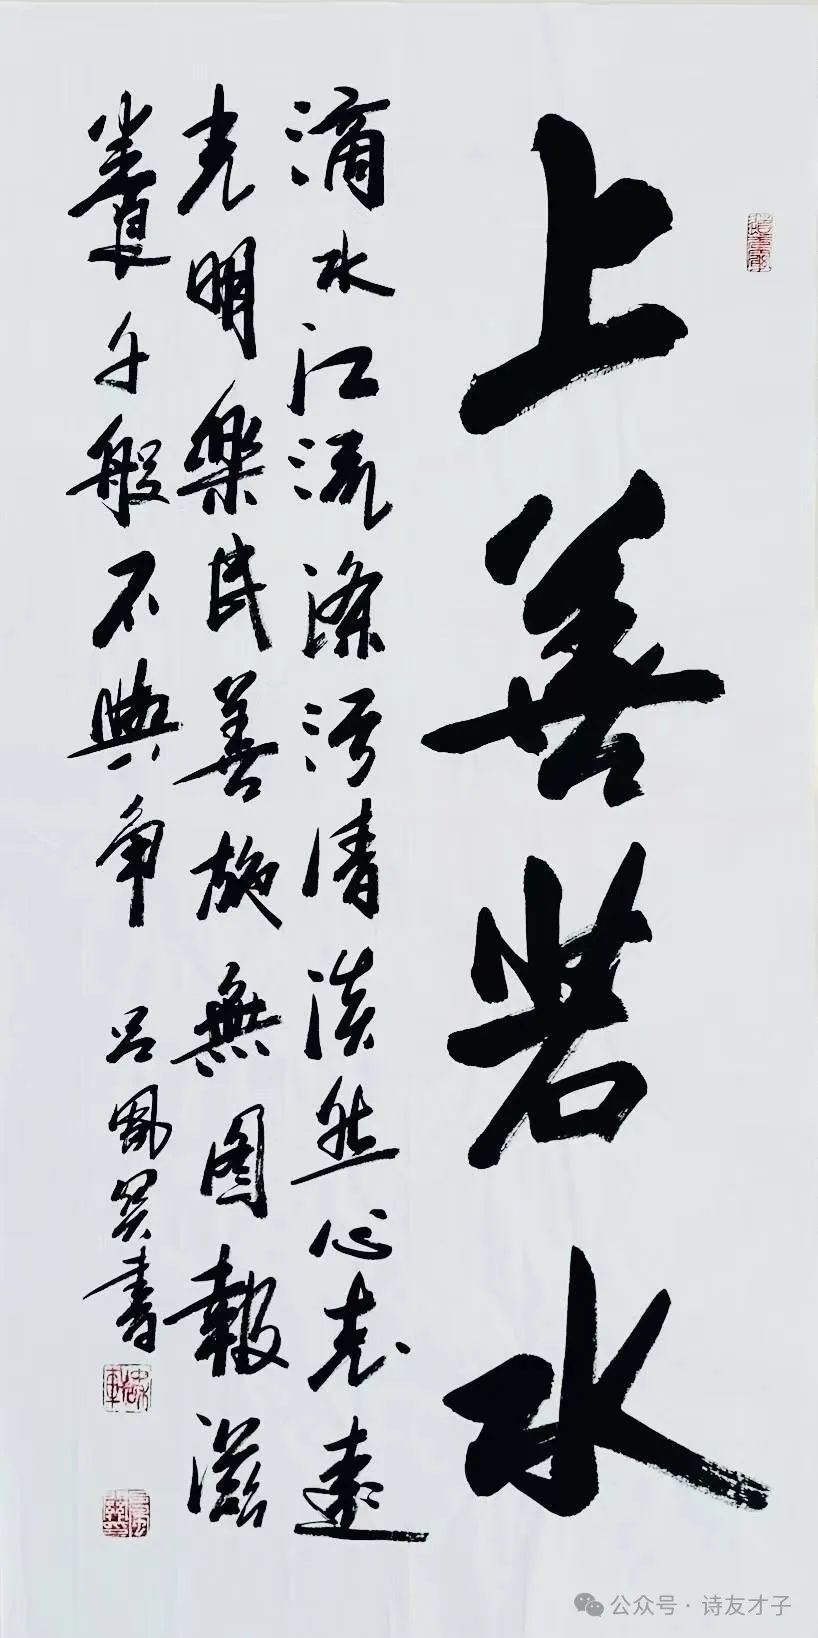 上善若水
滴水江流滌污清淡然心志遠
光明樂民善施無图報滋
養千般不與爭
吕鳳書
公众号·诗友才子